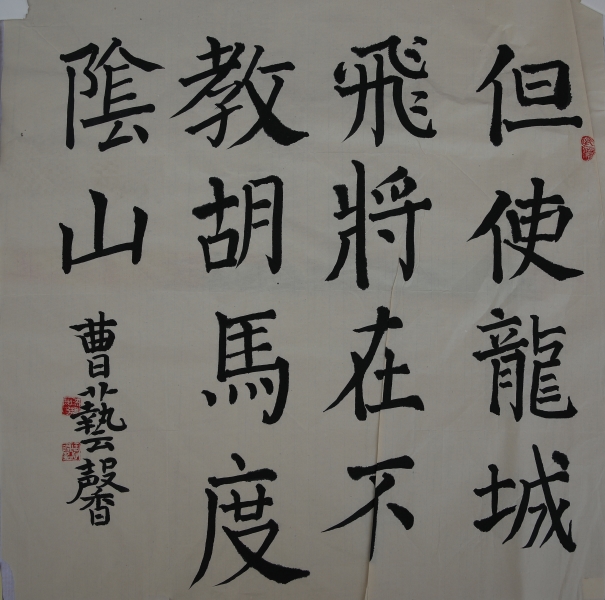 但使龍城
飛將在不
教胡馬度
陰山
曹藝馨